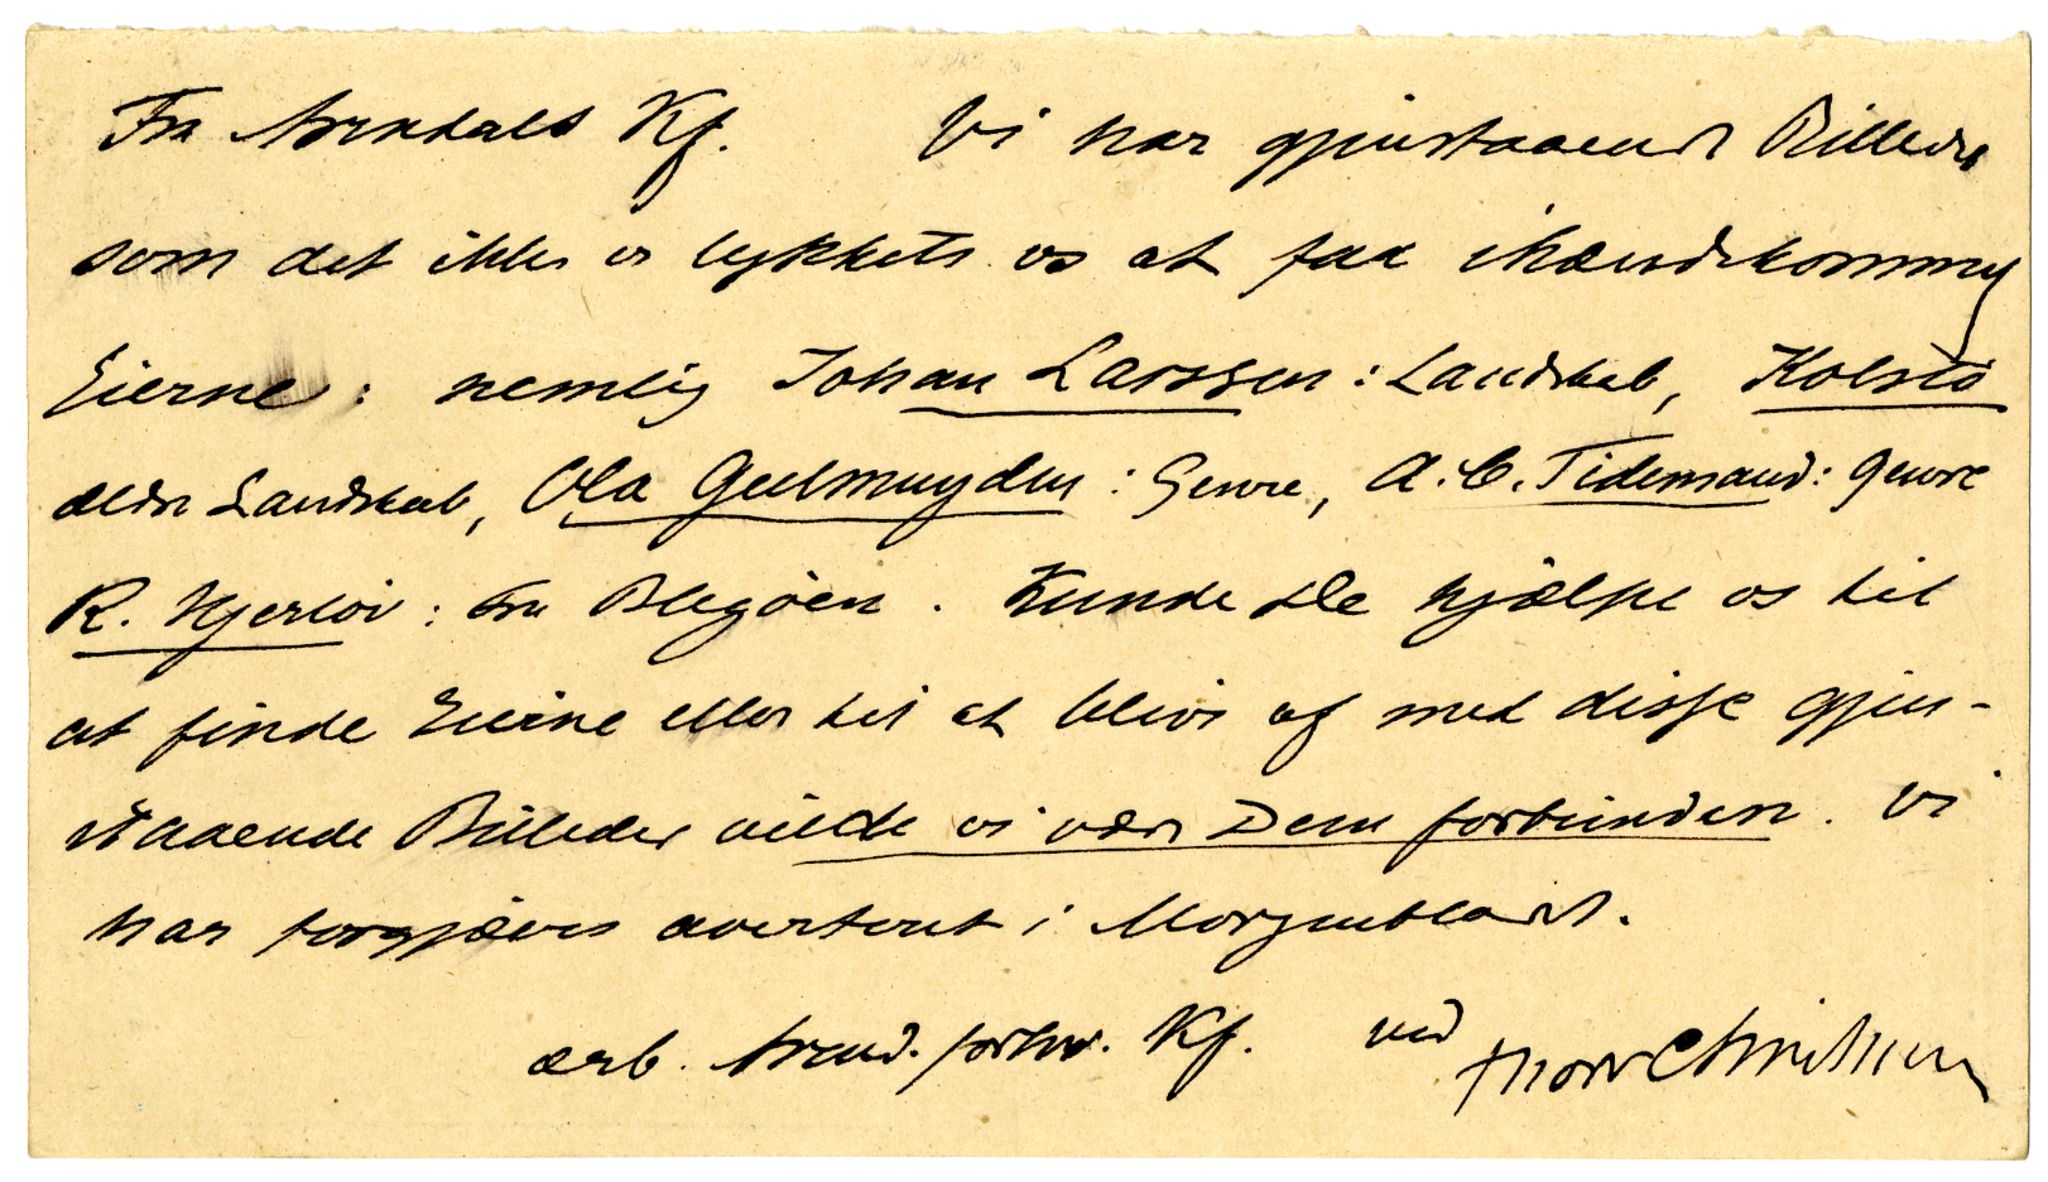 Fra Arendals Kf. Vi har gjenstaaende Billeder
som det ikke er lykkets os at faa ihændekommet
Eierne: nemlig Johan Larssen: Landskab, Kolstö
ældre Landskab, Ola Geelmuyden: Genre, A. C. Tidemand: Genre
R. Hjerlöv: Fra Blegöen. Kunde De hjælpe os til
at finde Eierne eller til at blive af med disse gjen-
staaende Billeder vilde vi være Dem forbunden. Vi
har forgjæves avertert i Morgenbladet.
ærb. Arend. forhv. Kf. ved